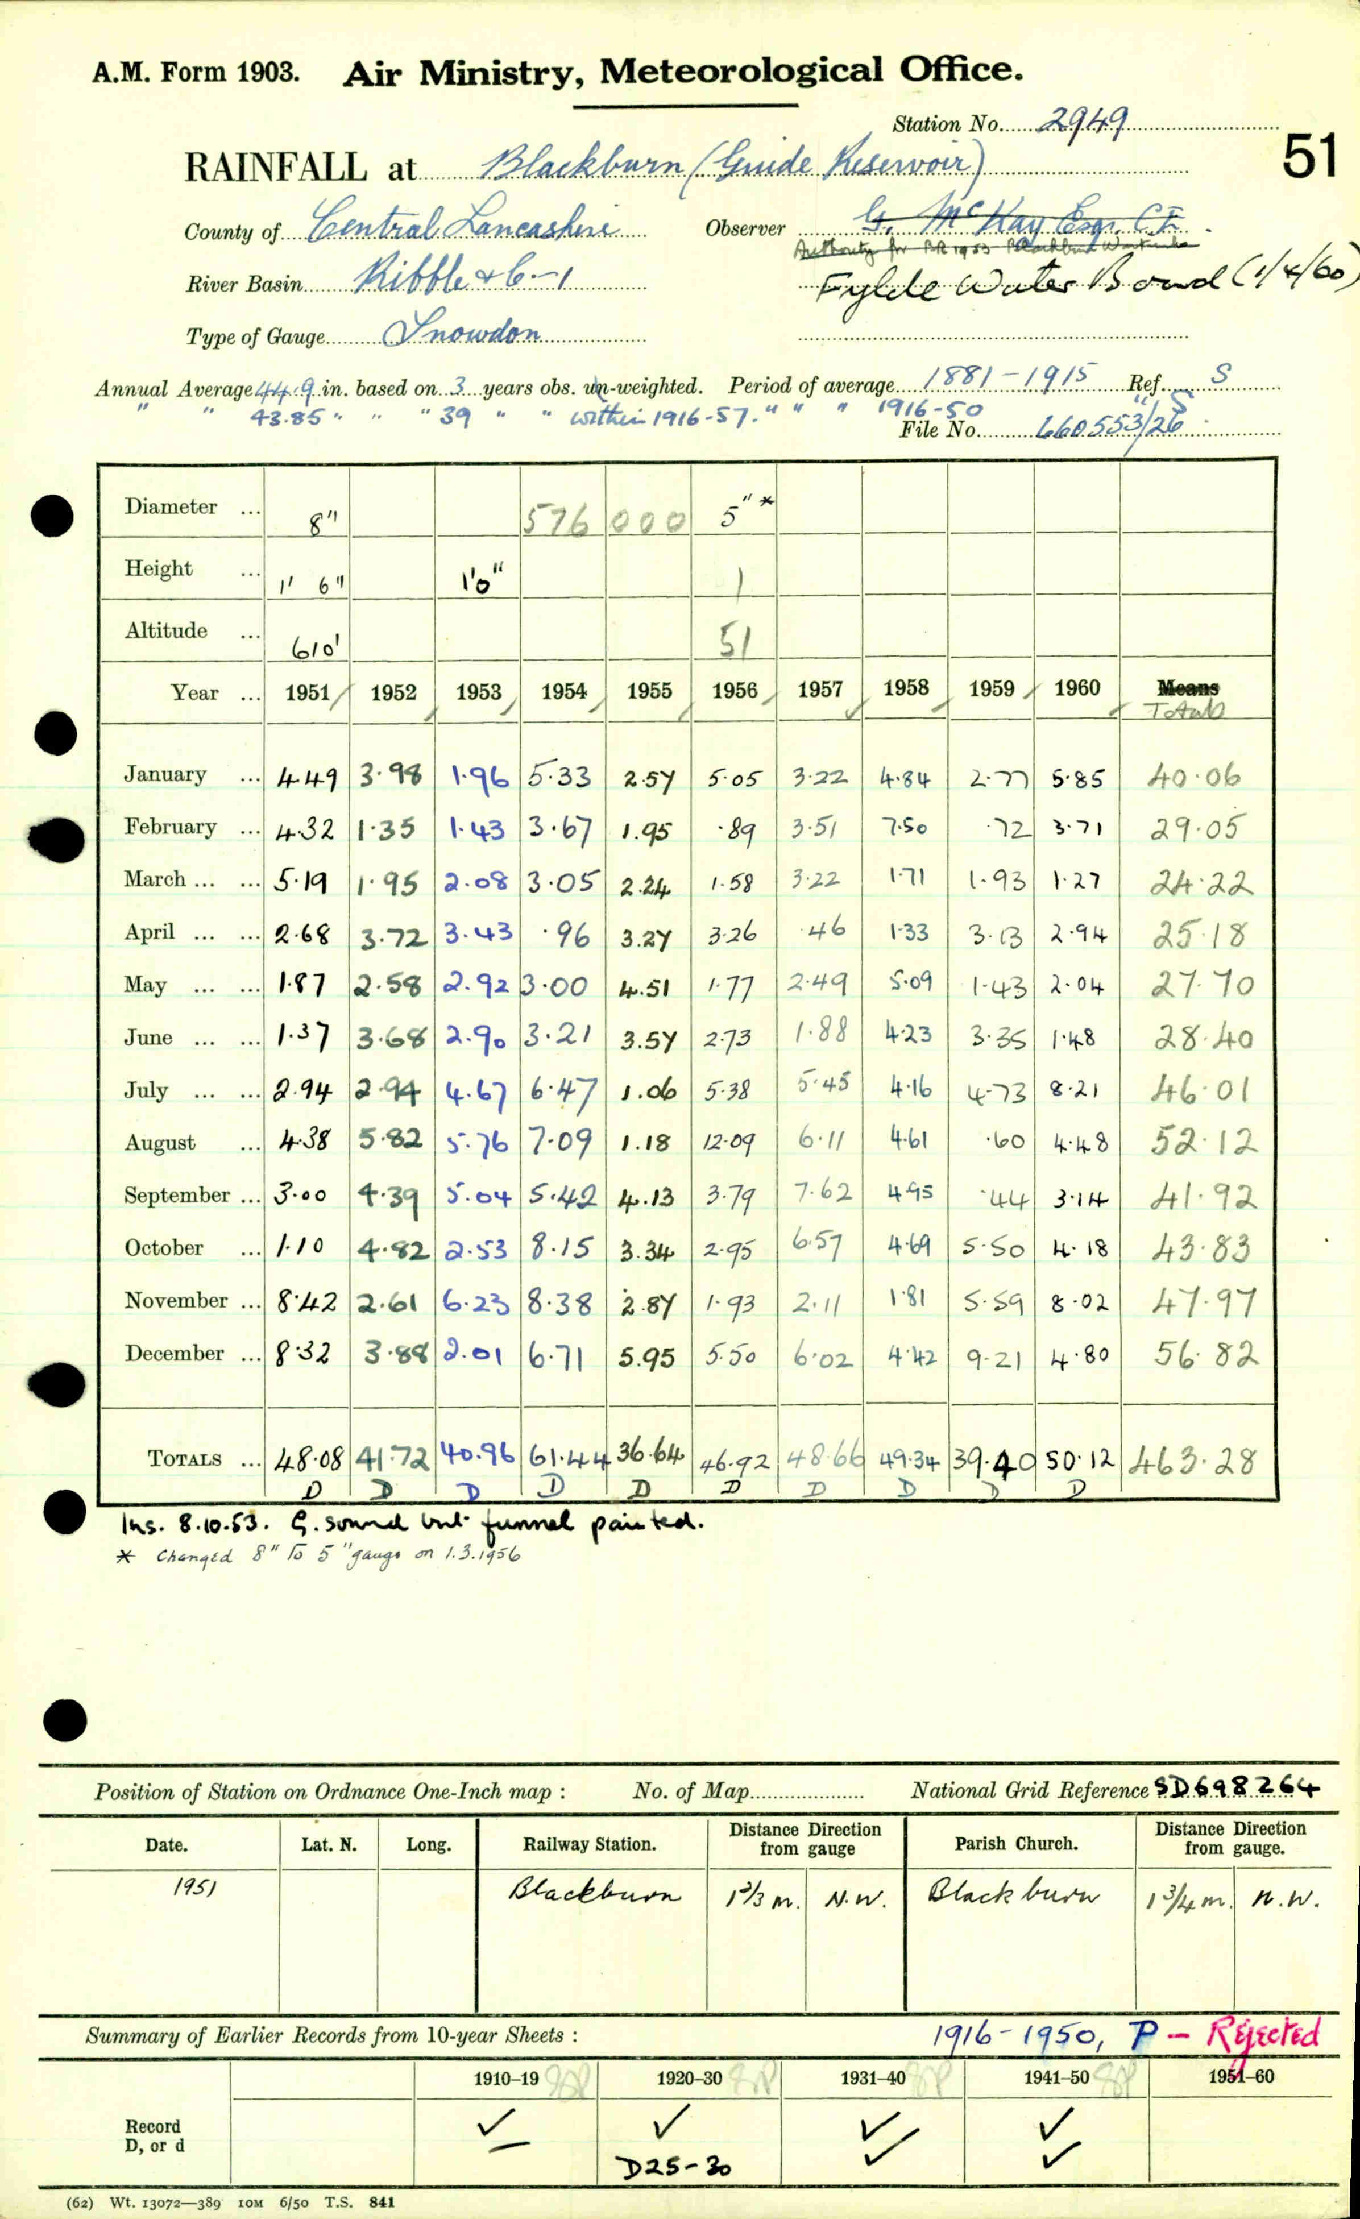 A.M. Form 1903. Air Ministry, Meteorological Office.
Station No. 2949
51
RAINFALL at Blackburn (Guide Reservoir)
County of Central Lancashire Observer G. McKay Esqr. C.E.
Authority for BR 1953 Blackburn Waterworks
River Basin Ribble & C-1 Fylde Water Board (1/4/60)
Type of Gauge Snowdon
Annual Average 44.9 in. based on 3 years obs. un-weighted. Period of average 1881-1915 Ref. S
" " 43.85 " " " 39 " " within 1916-57. " " " 1916-50 " S
File No. 660553/26
Diameter ... 8" 576 000 5" *
Height ... 1' 6" 1'0" 1
Altitude ... 610' 51
Year ... 1951 1952 1953 1954 1955 1956 1957 1958 1959 1960 Means
Totals
January ... 4.49 3.98 1.96 5.33 2.57 5.05 3.22 4.84 2.77 5.85 40.06
February ... 4.32 1.35 1.43 3.67 1.95 .89 3.51 7.50 .72 3.71 29.05
March ... ... 5.19 1.95 2.08 3.05 2.24 1.58 3.22 1.71 1.93 1.27 24.22
April ... ... 2.68 3.72 3.43 .96 3.27 3.26 .46 1.33 3.13 2.94 25.18
May ... ... 1.87 2.58 2.92 3.00 4.51 1.77 2.49 5.09 1.43 2.04 27.70
June ... ... 1.37 3.68 2.90 3.21 3.57 2.73 1.88 4.23 3.35 1.48 28.40
July ... ... 2.94 2.94 4.67 6.47 1.06 5.38 5.45 4.16 4.73 8.21 46.01
August ... 4.38 5.82 5.76 7.09 1.18 12.09 6.11 4.61 .60 4.48 52.12
September ... 3.00 4.39 5.04 5.42 4.13 3.79 7.62 4.95 .44 3.14 41.92
October ... 1.10 4.82 2.53 8.15 3.34 2.95 6.57 4.69 5.50 4.18 43.83
November ... 8.42 2.61 6.23 8.38 2.87 1.93 2.11 1.81 5.59 8.02 47.97
December ... 8.32 3.88 2.01 6.71 5.95 5.50 6.02 4.42 9.21 4.80 56.82
TOTALS ... 48.08 41.72 40.96 61.44 36.64 46.92 48.66 49.34 39.40 50.12 463.28
D D D D D D D D D D
Ins. 8.10.53. G. sound but funnel painted.
* Changed 8" To 5" gauge on 1.3.1956
Position of Station on Ordnance One-Inch map : No. of Map National Grid Reference SD698264
Date. Lat. N. Long. Railway Station. Distance from Direction gauge Parish Church. Distance from Direction gauge.
1951 Blackburn 1 2/3 m. N.W. Blackburn 1 3/4 m. N.W.
Summary of Earlier Records from 10-year Sheets : 1916-1950, P - Rejected
1910–19 1920–30 1931–40 1941–50 1951–60
Record ✓ ✓ ✓ ✓
D, or d — D25-30 ✓ ✓
(62) Wt. 13072—389 10M 6/50 T.S. 841